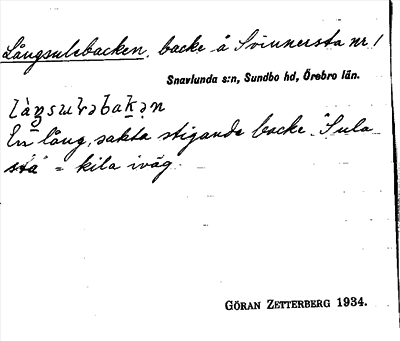 Långsulebacken, backe å Svinnersta nr 1
Snavlunda s:n, Sundbo hd, Örebro län.
En lång, sakta stigande backe. "Sula
stä" = kila iväg.
GÖRAN ZETTERBERG 1934.